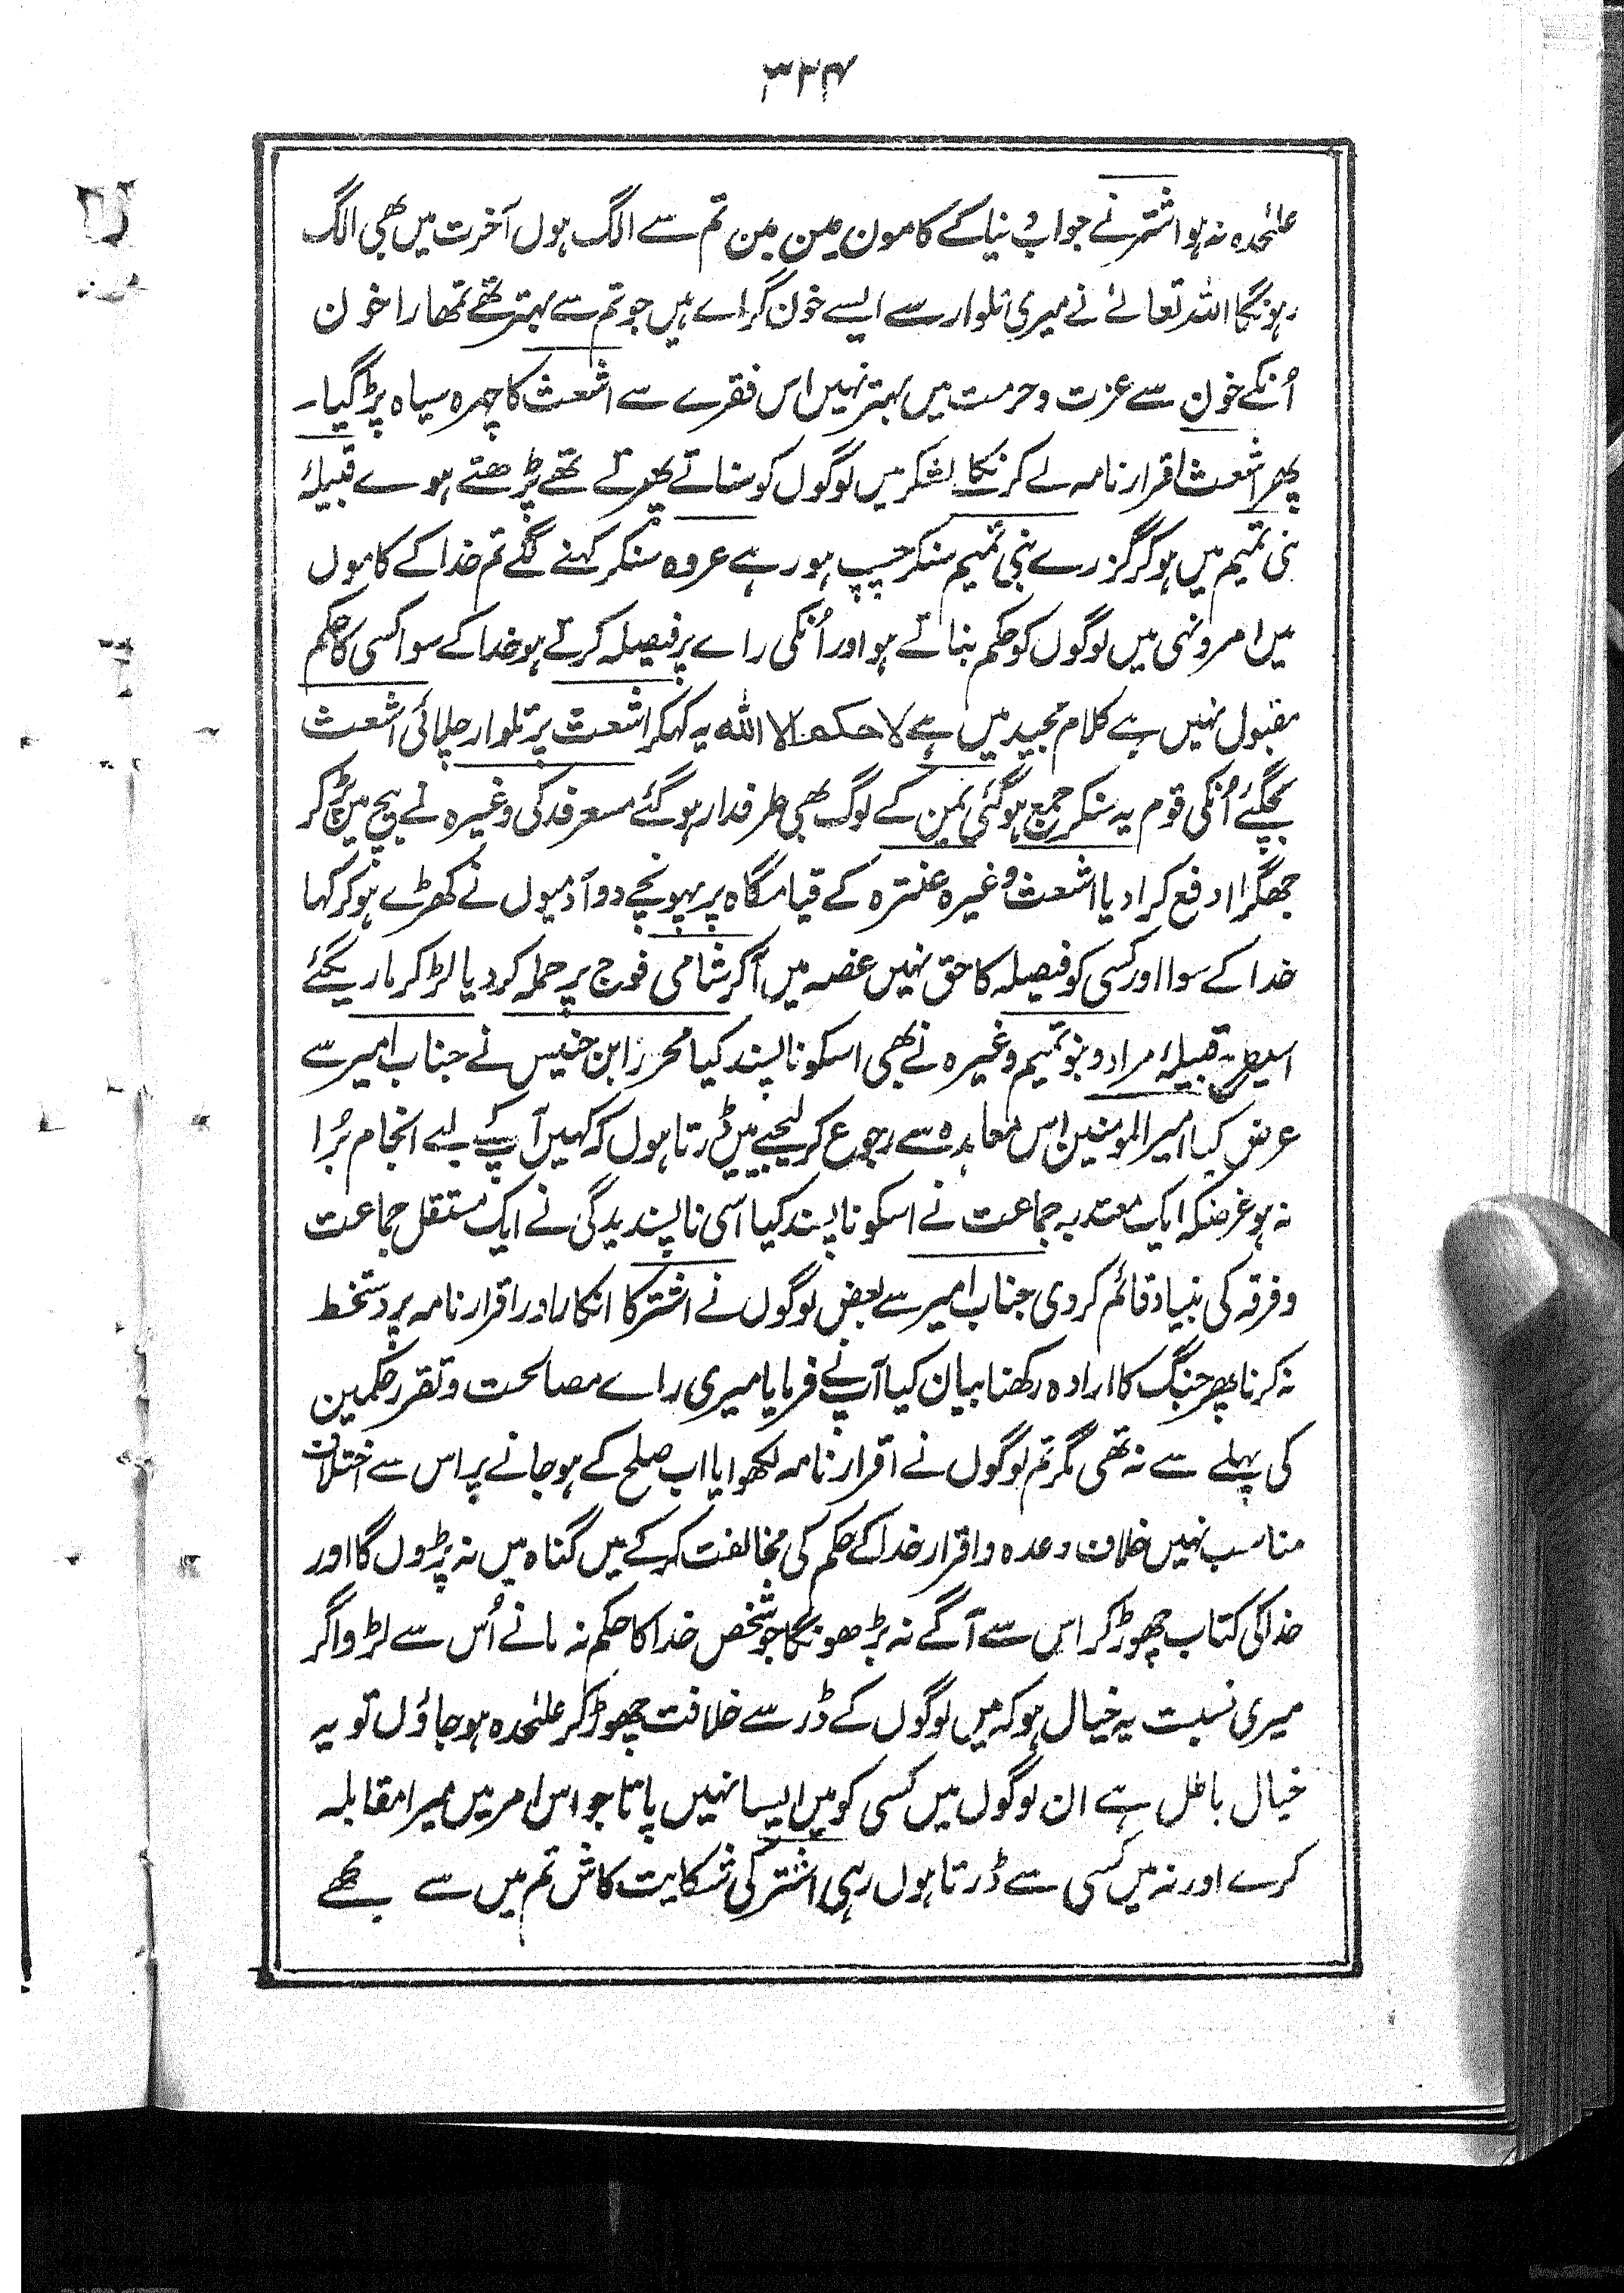 ۳۲۴
علیٰحدہ نہ ہو اشتر نے جواب دنیا کے کامون مین مین تم سے الگ ہوں آخرت میں بھی الگ
رہونگا اللہ تعالےٰ نے میری تلوار سے ایسے خون گراے ہیں جو تم سے بہتر تھے تمھارا خون
اُنکے خون سے عزت و حرمت میں بہتر نہیں اس فقرے سے اشعث کا چہرہ سیاہ پڑ گیا۔
پھر اشعث اقرار نامہ لے کر نکلے لشکر میں لوگوں کو سناتے پھرتے تھے پڑھتے ہوے قبیلۂ
بنی تمیم میں ہو کر گزرے بنی تمیم سنکر چپ ہو رہے عروہ سنکر کہنے لگے تم خدا کے کاموں
میں امر و نہی میں لوگوں کو حکم بناتے ہو اور اُنکی راے پر فیصلہ کرتے ہو خدا کے سوا کسی کا حکم
مقبول نہیں ہے کلام مجید میں ہے لا حکم الا اللہ یہ کہکر اشعث پر تلوار چلائی اشعث
بچگئے اُنکی قوم یہ سنکر جمع ہو گئی یمن کے لوگ بھی طرفدار ہو گئے مسعر فدکی وغیرہ نے بیچ میں پڑ کر
جھگڑا دفع کرا دیا اشعث وغیرہ عنترہ کے قیامگاہ پر پہونچے دو آدمیوں نے کھڑے ہو کر کہا
خدا کے سوا اور کسی کو فیصلہ کا حق نہیں غصہ میں آکر شامی فوج پر حملہ کر دیا لڑ کر مارے گئے
اسیطرح قبیلۂ مراد و بنو تمیم وغیرہ نے بھی اسکو ناپسند کیا محرز ابن خنیس نے جناب امیر سے
عرض کیا امیر المومنین اس معاہدہ سے رجوع کر لیجیے میں ڈرتا ہوں کہ کہیں آپ کے لیے انجام بُرا
نہ ہو غرضکہ ایک معتد بہ جماعت نے اسکو ناپسند کیا اسی ناپسندیدگی نے ایک مستقل جماعت
و فرقہ کی بنیاد قائم کر دی جناب امیر سے بعض لوگوں نے اشتر کا انکار اور اقرار نامہ پر دستخط
نہ کرنا پھر جنگ کا ارادہ رکھنا بیان کیا آپ نے فرمایا میری راے مصالحت و تقرر حکمین
کی پہلے سے نہ تھی مگر تم لوگوں نے اقرار نامہ لکھوایا اب صلح کے ہو جانے پر اس سے اختلاف
مناسب نہیں خلاف وعدہ و اقرار خدا کے حکم کی مخالفت کر کے میں گناہ میں نہ پڑوں گا اور
خدا کی کتاب چھوڑ کر اس سے آگے نہ بڑھونگا جو شخص خدا کا حکم نہ مانے اُس سے لڑو اگر
میری نسبت یہ خیال ہو کہ میں لوگوں کے ڈر سے خلافت چھوڑ کر علیٰحدہ ہو جاؤں تو یہ
خیال باطل ہے ان لوگوں میں کسی کو میں ایسا نہیں پاتا جو اس امر میں میرا مقابلہ
کرے اور نہ میں کسی سے ڈرتا ہوں رہی اشتر کی شکایت کاش تم میں سے مجھے